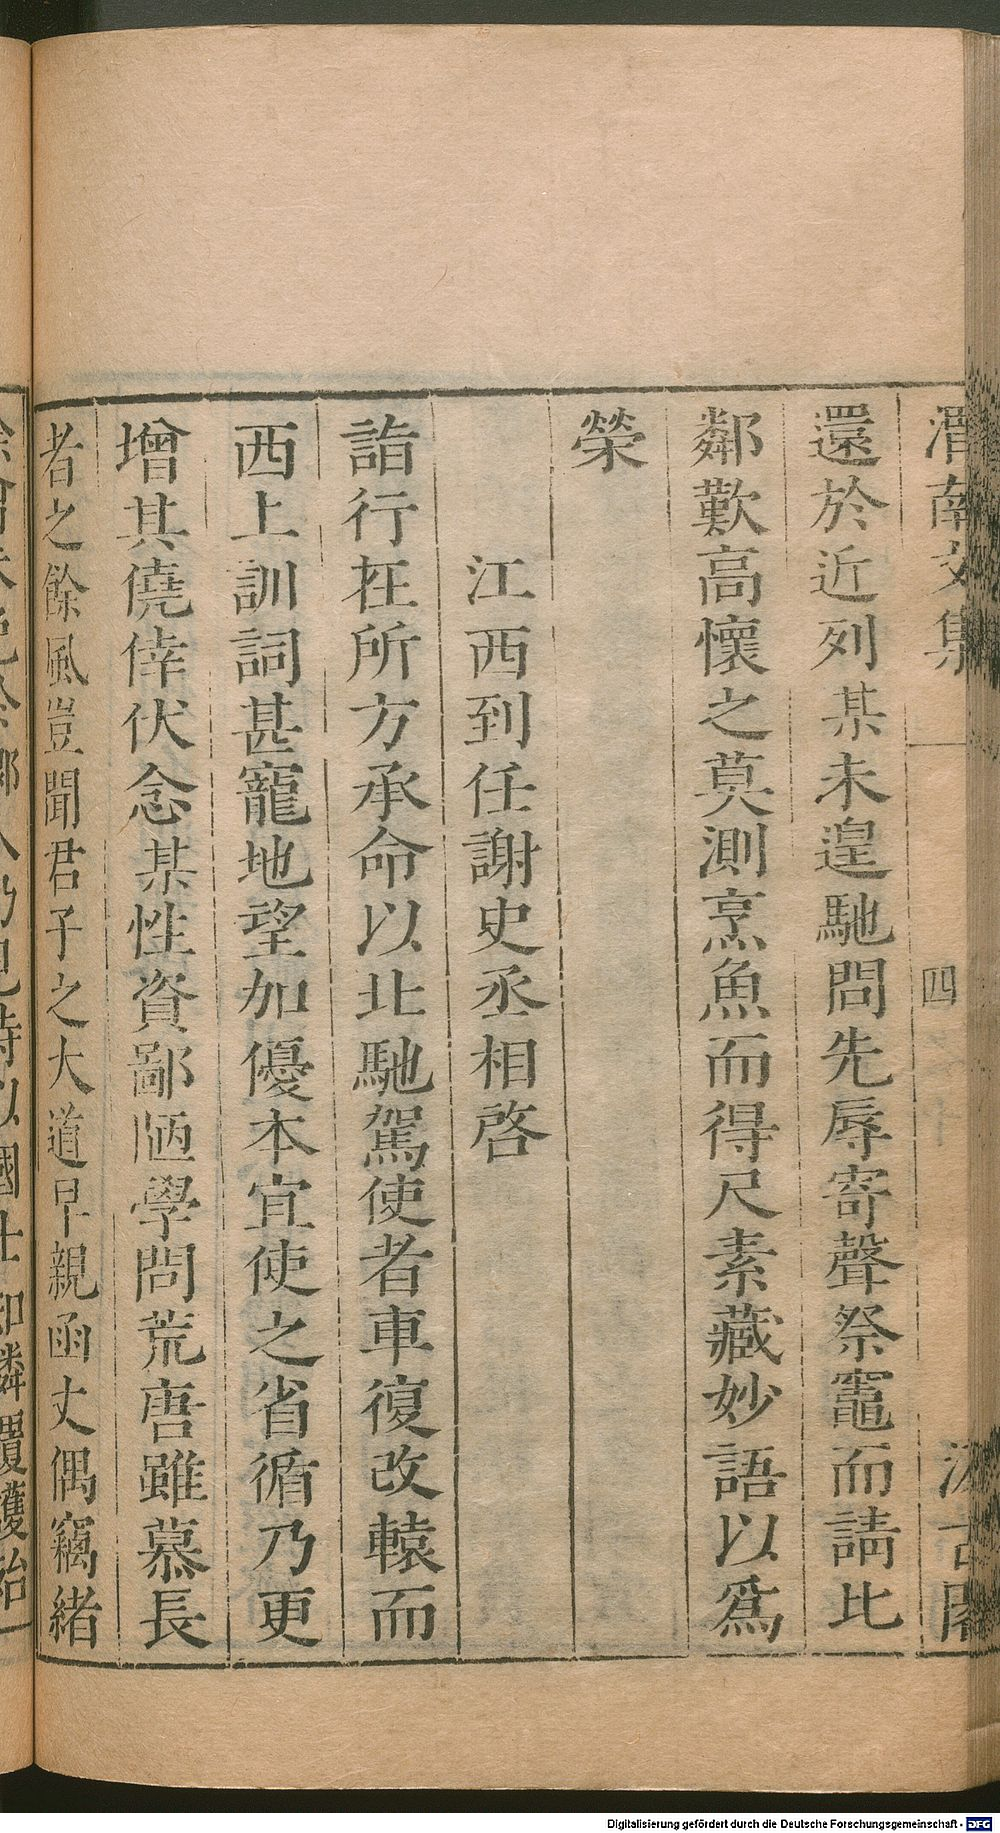 渭南文集 四 汲古閣
還於近列某未遑馳問先辱寄聲祭竈而請比
鄰歎高懷之莫測烹魚而得尺素藏妙語以爲
榮
江西到任謝史丞相啓
詣行在所方承命以北馳駕使者車復改轅而
西上訓詞甚寵地望加優本宜使之省循乃更
增其僥倖伏念某性資鄙陋學問荒唐雖慕長
者之餘風豈聞君子之大道早親函丈偶竊緒
Digitalisierung gefördert durch die Deutsche Forschungsgemeinschaft - DFG